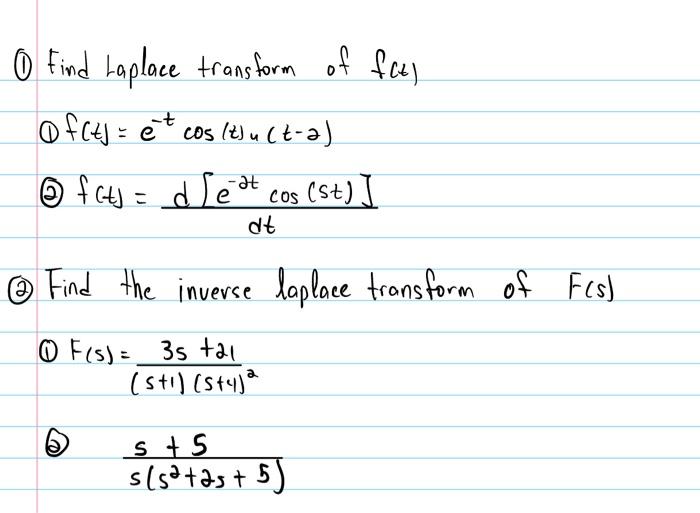 ① Find Laplace transform of f(t)
① f(t) = e^-t cos(t)u(t-2)
② f(t) = d[e^-2t cos(5t)]
dt
② Find the inverse laplace transform of F(s)
① F(s) = 3s +21
(s+1)(s+4)²
② s + 5
s(s²+2s+5)